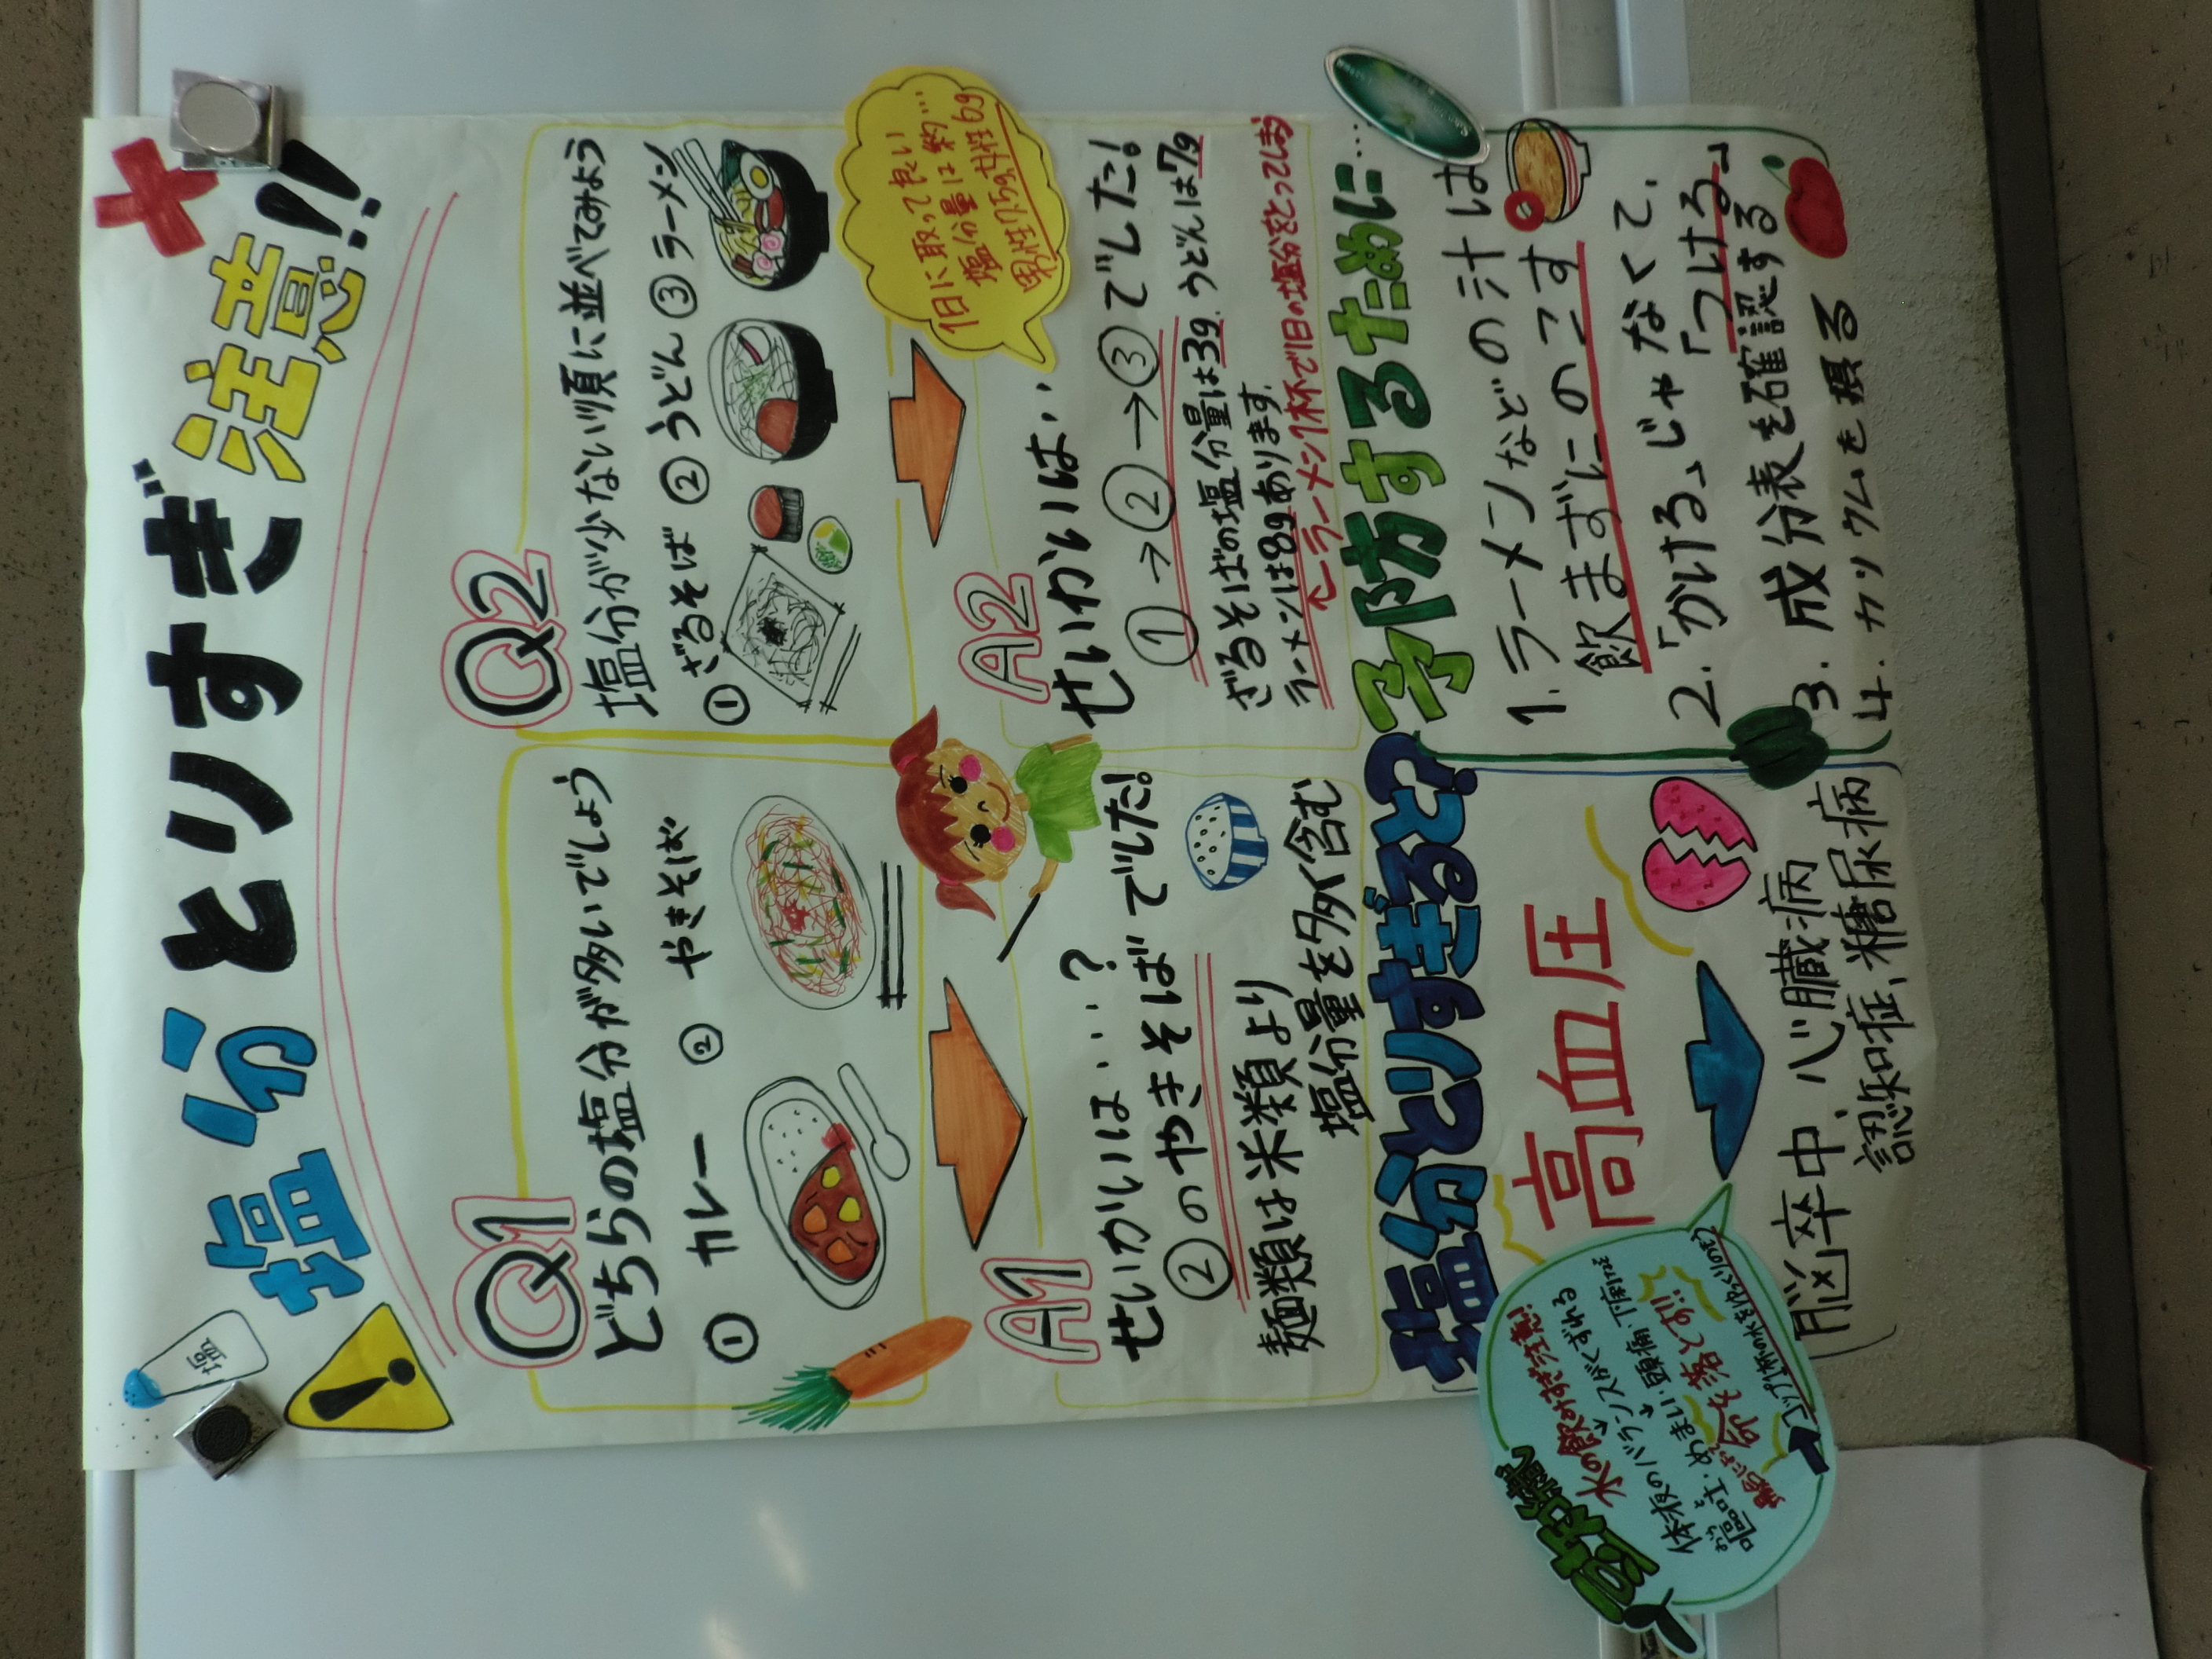 塩分とりすぎ注意!!
塩
Q1
どちらの塩分が多いでしょう
① カレー ② やきそば
Q2
塩分が少ない順に並べてみよう
①ざるそば ②うどん ③ラーメン
1日に取って良い
塩分量は約…
男性7.5g女性6g
A1
せいかいは…?
②のやきそばでした!
麺類は米類より
塩分量を多く含む
A2
せいかいは…
①→②→③でした!
ざるそばの塩分量は3g、うどんは7g
ラーメンは8gあります。
ラーメン1杯で1日の塩分をとってしまう
塩分とりすぎると?
高血圧
脳卒中、心臓病
認知症、糖尿病
予防するために…
1. ラーメンなどの汁は
飲まずにのこす
2.「かける」じゃなくて、
「つける」
3. 成分表を確認する
4. カリウムを摂る
豆知識
水の飲みすぎ注意!
体液のバランスがくずれる
嘔吐、めまい、頭痛、下痢
おうと
最悪
命を落とす!!
コップ1杯の水を